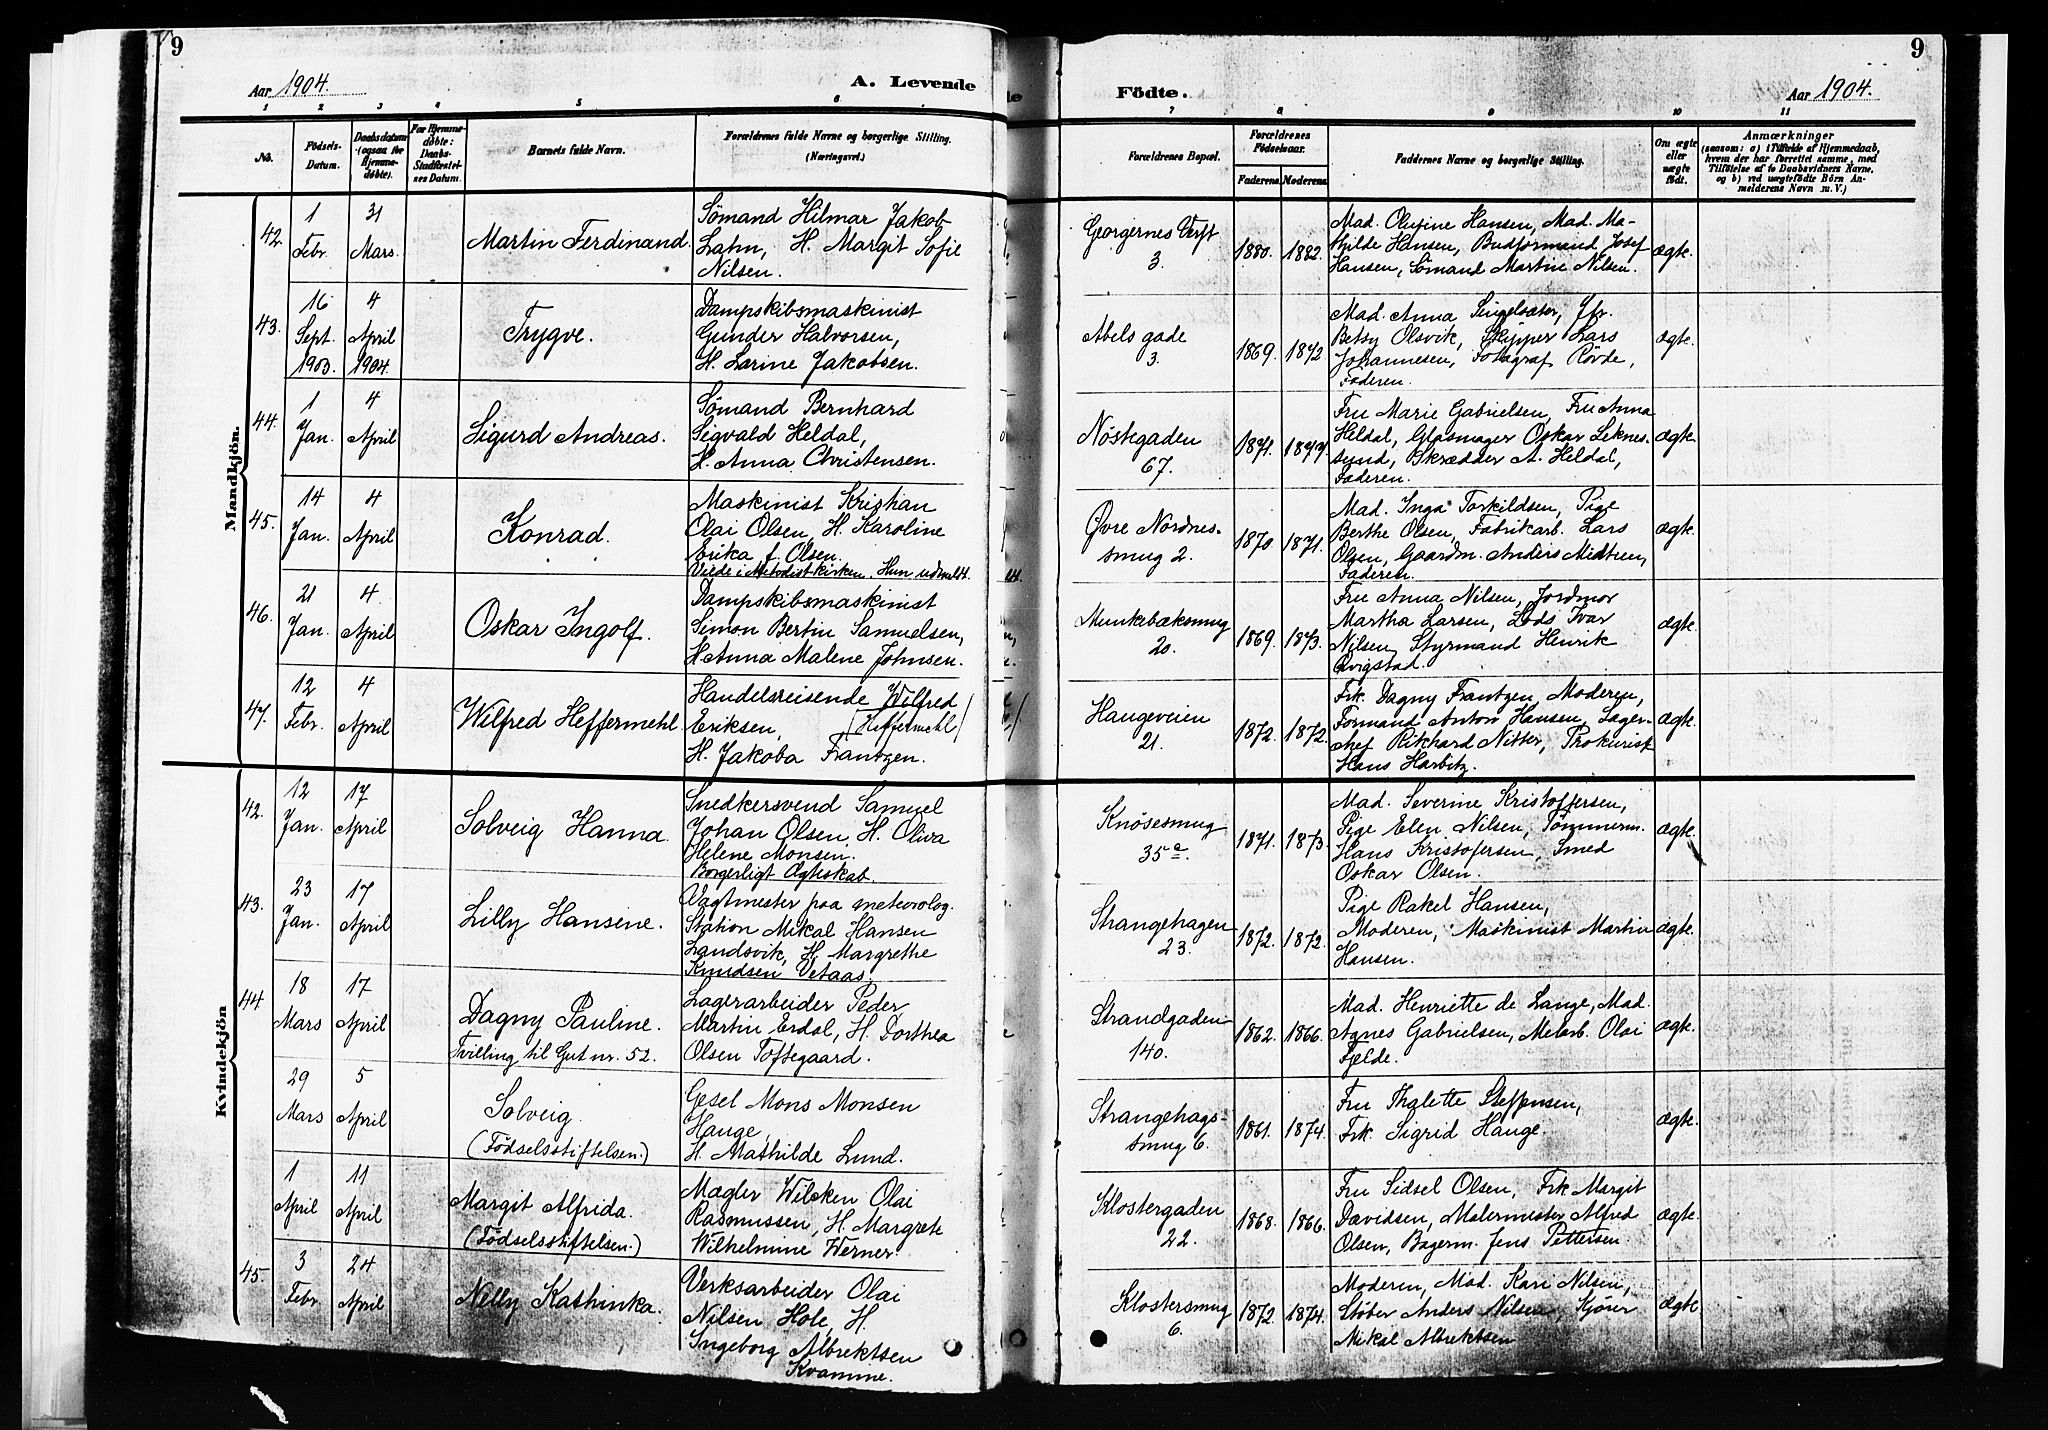 9
Aar 1904.
A. Levende
1 2 3 4 5 6
No.
Födsels-
Datum.
Daabsdatum
(ogsaa for
Hjemme-
døbte).
For Hjemme-
døbte:
Daabs-
Stadfæstel-
ses Datum.
Barnets fulde Navn.
Forældrenes fulde Navne og borgerlige Stilling.
(Næringsvei.)
Mandkjön.
42.
1
Febr.
31
Mars.
Martin Ferdinand.
Sømand Hilmar Jakob
Lahn, H. Margit Sofie
Nilsen.
43.
16
Sept.
1903.
4
April
1904.
Trygve.
Dampskibsmaskinist
Gunder Halvorsen,
H. Larine Jakobsen.
44.
1
Jan.
4
April
Sigurd Andreas.
Sømand Bernhard
Sigvald Heldal,
H. Anna Christensen.
45.
14
Jan.
4
April
Konrad.
Maskinist Kristian
Olai Olsen, H. Karoline
Erika f. Olsen.
Viede i Metodistkirken. Hun udmeldt.
46.
21
Jan.
4
April
Oskar Ingolf.
Dampskibsmaskinist
Simon Bertin Samuelsen,
H. Anna Malene Johnsen.
47.
12
Febr.
4
April
Wilfred Heffermehl
Handelsreisende Wilfred
Eriksen, /Heffermehl/
H. Jakoba Frantzen.
Kvindekjön
42.
12
Jan.
17
April
Solveig Hanna.
Snedkersvend Samuel
Johan Olsen, H. Oliva
Helene Monsen.
Borgerligt Ægteskab.
43.
23
Jan.
17
April
Lilly Hansine.
Vagtmester paa meteorolog.
Station Mikal Hansen
Landsvik, H. Margrethe
Knudsen Vetaas.
44
18
Mars
17
April
Dagny Pauline.
Tvilling til Gut nr. 52.
Lagerarbeider Peder
Martin Erdal, H. Dorthea
Olsen Toftegaard.
29
Mars
5
April
Solveig
(Födselsstiftelsen.)
Gesel Mons Monsen
Hauge,
H. Mathilde Lund.
1
April
11
April
Margit Alfrida.
(Födselsstiftelsen.)
Mægler Wilcken Olai
Rasmussen, H. Margrete
Wilhelmine Werner
45.
3
Febr.
24
April
Nelly Kathinka.
Verksarbeider Olai
Nilsen Hole, H.
Ingeborg Albrektsen
Kvamme.
9
Födte.
Aar 1904.
7 8 9 10 11
Forældrenes Bopæl.
Forældrenes
Födselsaar.
Faderens. Moderens.
Faddernes Navne og borgerlige Stilling.
Om ægte
eller
uægte
födt.
Anmærkninger
(saasom: a) i Tilfælde af Hjemmedaab,
hvem der har forrettet samme, med
Tilföielse af to Daabsvidners Navne,
og b) ved uægtefödte Börn An-
melderens Navn m. V.)
Georgernes Verft
3.
1880. 1882.
Mad. Olufine Hansen, Mad. Ma-
thilde Hansen, Budformand Josef
Hansen, Sømand Martin Nilsen.
ægte.
Abels gade
3.
1869. 1872
Mad. Anna Singelsæter, Jfr.
Betsy Olsvik, Skipper Lars
Johannesen, Fotograf Røvde,
Faderen.
ægte.
Nöstegaden
67.
1871. 1877.
Fru Marie Gabrielsen, Fru Anna
Heldal, Glasmager Oskar Leknes-
sund, Skrædder A. Heldal,
Faderen.
ægte.
Øvre Nordnes-
smug 2.
1870. 1871.
Mad. Inga Torkildsen, Pige
Berthe Olsen, Fabrikarb. Lars
Olsen, Gaardm. Anders Midtun,
Faderen.
ægte.
Munkebæksmug
20.
1869. 1873.
Fru Anna Nilsen, Jordmor
Martha Larsen, Lods Ivar
Nilsen, Styrmand Henrik
Qvigstad.
ægte.
Haugeveien
21.
1872. 1872.
Frk. Dagny Frantzen, Moderen,
Formand Anton Hansen, Lager-
chef Rikhard Nitter, Prokurist
Hans Harbitz.
ægte.
Knösesmug
35 a.
1871. 1873.
Mad. Severine Kristoffersen,
Pige Elen Nilsen, Tømmerm.
Hans Kristofersen, Smed
Oskar Olsen.
ægte.
Strangehagen
23.
1872. 1872.
Pige Rakel Hansen,
Moderen, Maskinist Martin
Hansen.
ægte.
Strandgaden
140.
1862. 1866.
Mad. Henriette de Lange, Mad.
Agnes Gabrielsen, Melarb. Olai
Fjelde.
ægte.
Strangehags-
smug 6.
1861. 1874.
Fru Thalette Steffensen,
Frk. Sigrid Hauge.
ægte.
Klostergaden
22.
1868. 1866.
Fru Sidsel Olsen, Frk Margit
Davidsen, Malermester Alfred
Olsen, Bagerm. Jens Pettersen.
ægte.
Klostersmug
6.
1872. 1874.
Moderen, Mad. Kari Nilsen,
Støber Anders Nilsen, Kjører
Mikal Albrektsen
ægte